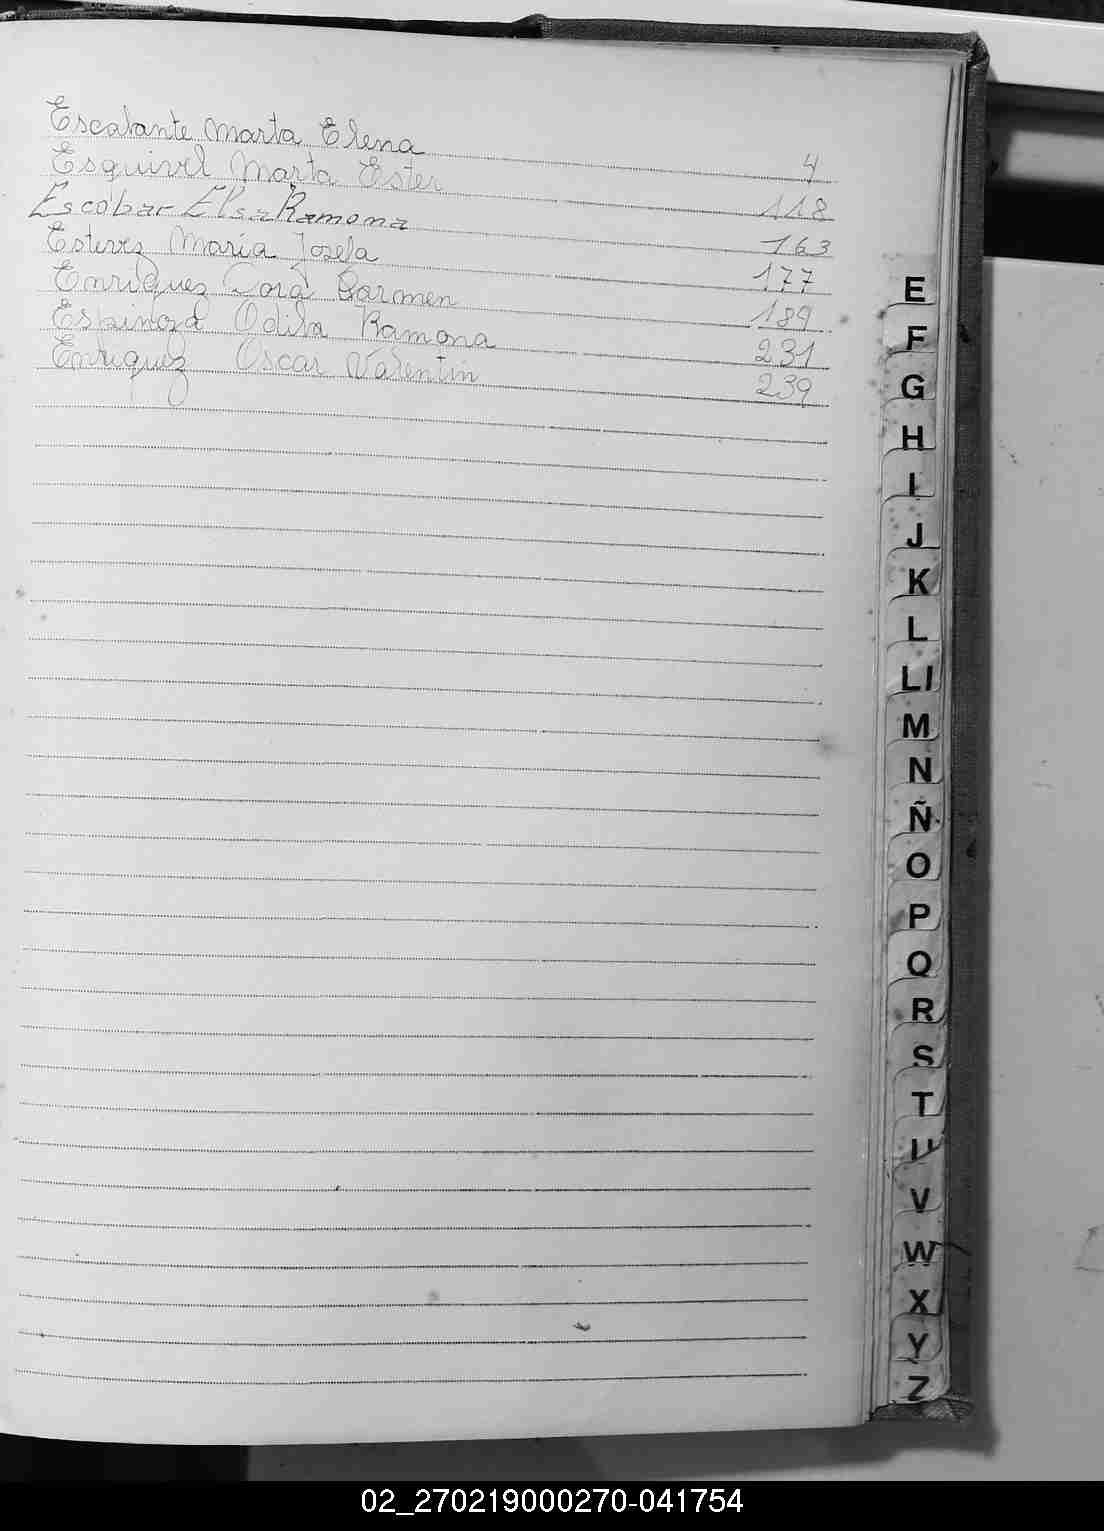 Escalante Marta Elena 4
Esquivel Marta Ester 118
Escobar Elsa Ramona 163
Estevez María Josefa 177
Enriquez Dora Carmen 189
Espinoza Odila Ramona 231
Enriquez Oscar Valentin 239
E
F
G
H
I
J
K
L
Ll
M
N
Ñ
O
P
Q
R
S
T
U
V
W
X
Y
Z
02_270219000270-041754